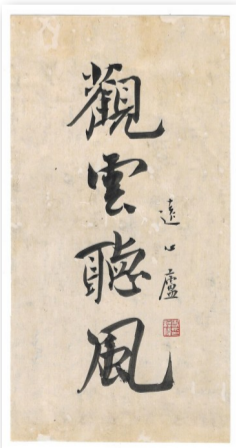 觀雲聽風
遠心廬